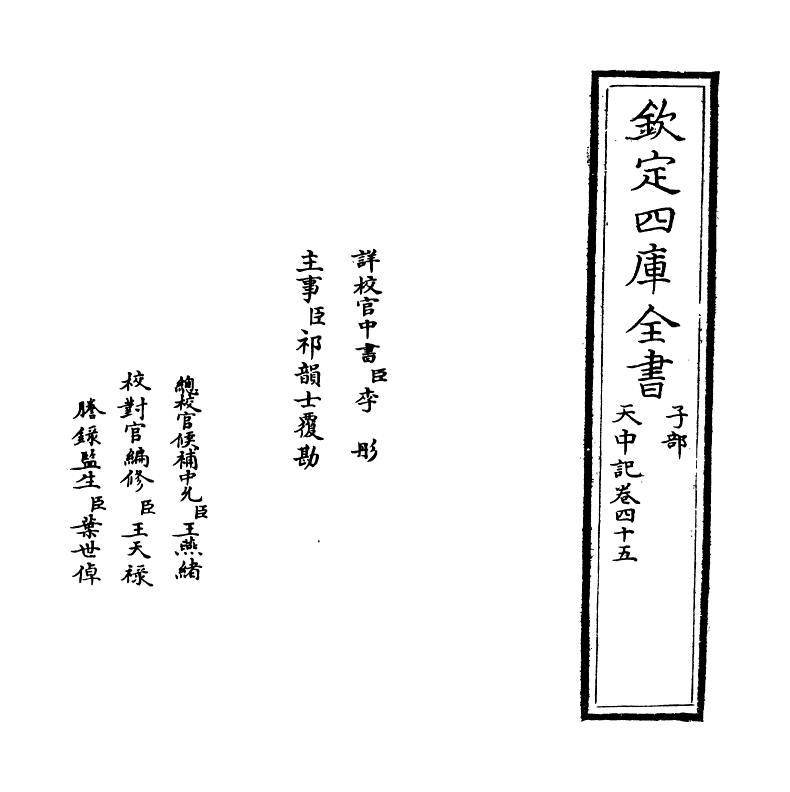 欽定四庫全書
子部
天中記卷四十五
詳校官中書臣李彤
主事臣祁韻士覆勘
總校官候補中允臣王燕緒
校對官編修臣王天祿
謄錄監生臣葉世倬